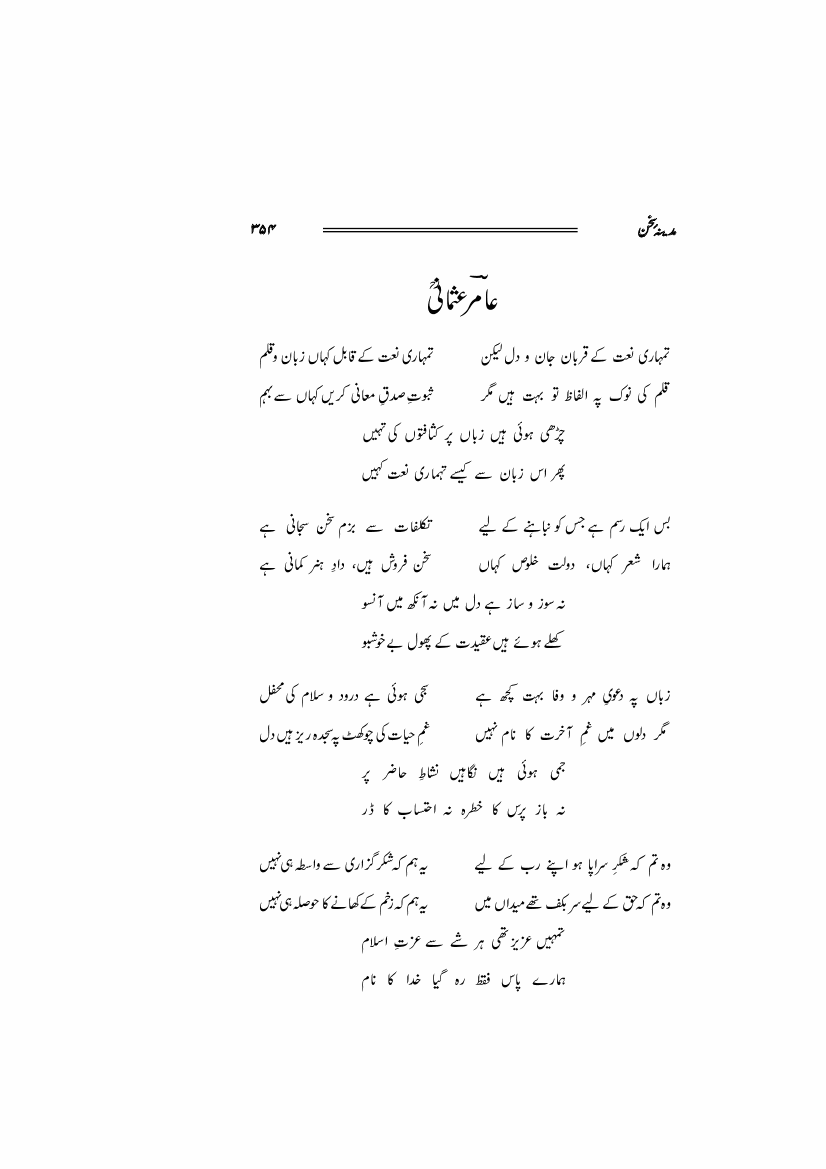 مدینۂ سخن ۳۵۴
عامر عثمانیؒ
تمہاری نعت کے قربان جان و دل لیکن تمہاری نعت کے قابل کہاں زبان و قلم
قلم کی نوک پہ الفاظ تو بہت ہیں مگر ثبوتِ صدقِ معانی کریں کہاں سے بہم
چڑھی ہوئی ہیں زباں پر کثافتوں کی تہیں
پھر اس زبان سے کیسے تہماری نعت کہیں
بس ایک رسم ہے جس کو نباہنے کے لیے تکلفات سے بزم سخن سجانی ہے
ہمارا شعر کہاں، دولت خلوص کہاں سخن فروش ہیں، دادِ ہنر کمانی ہے
نہ سوز و ساز ہے دل میں نہ آنکھ میں آنسو
کھلے ہوئے ہیں عقیدت کے پھول بے خوشبو
زباں پہ دعویِ مہر و وفا بہت کچھ ہے سجی ہوئی ہے درود و سلام کی محفل
مگر دلوں میں غمِ آخرت کا نام نہیں غمِ حیات کی چوکھٹ پہ سجدہ ریز ہیں دل
جمی ہوئی ہیں نگاہیں نشاطِ حاضر پر
نہ باز پرس کا خطرہ نہ احتساب کا ڈر
وہ تم کہ شکرِ سراپا ہو اپنے رب کے لیے یہ ہم کہ شکر گزاری سے واسطہ ہی نہیں
وہ تم کہ حق کے لیے سر بکف تھے میداں میں یہ ہم کہ زخم کے کھانے کا حوصلہ ہی نہیں
تمہیں عزیز تھی ہر شے سے عزتِ اسلام
ہمارے پاس فقط رہ گیا خدا کا نام